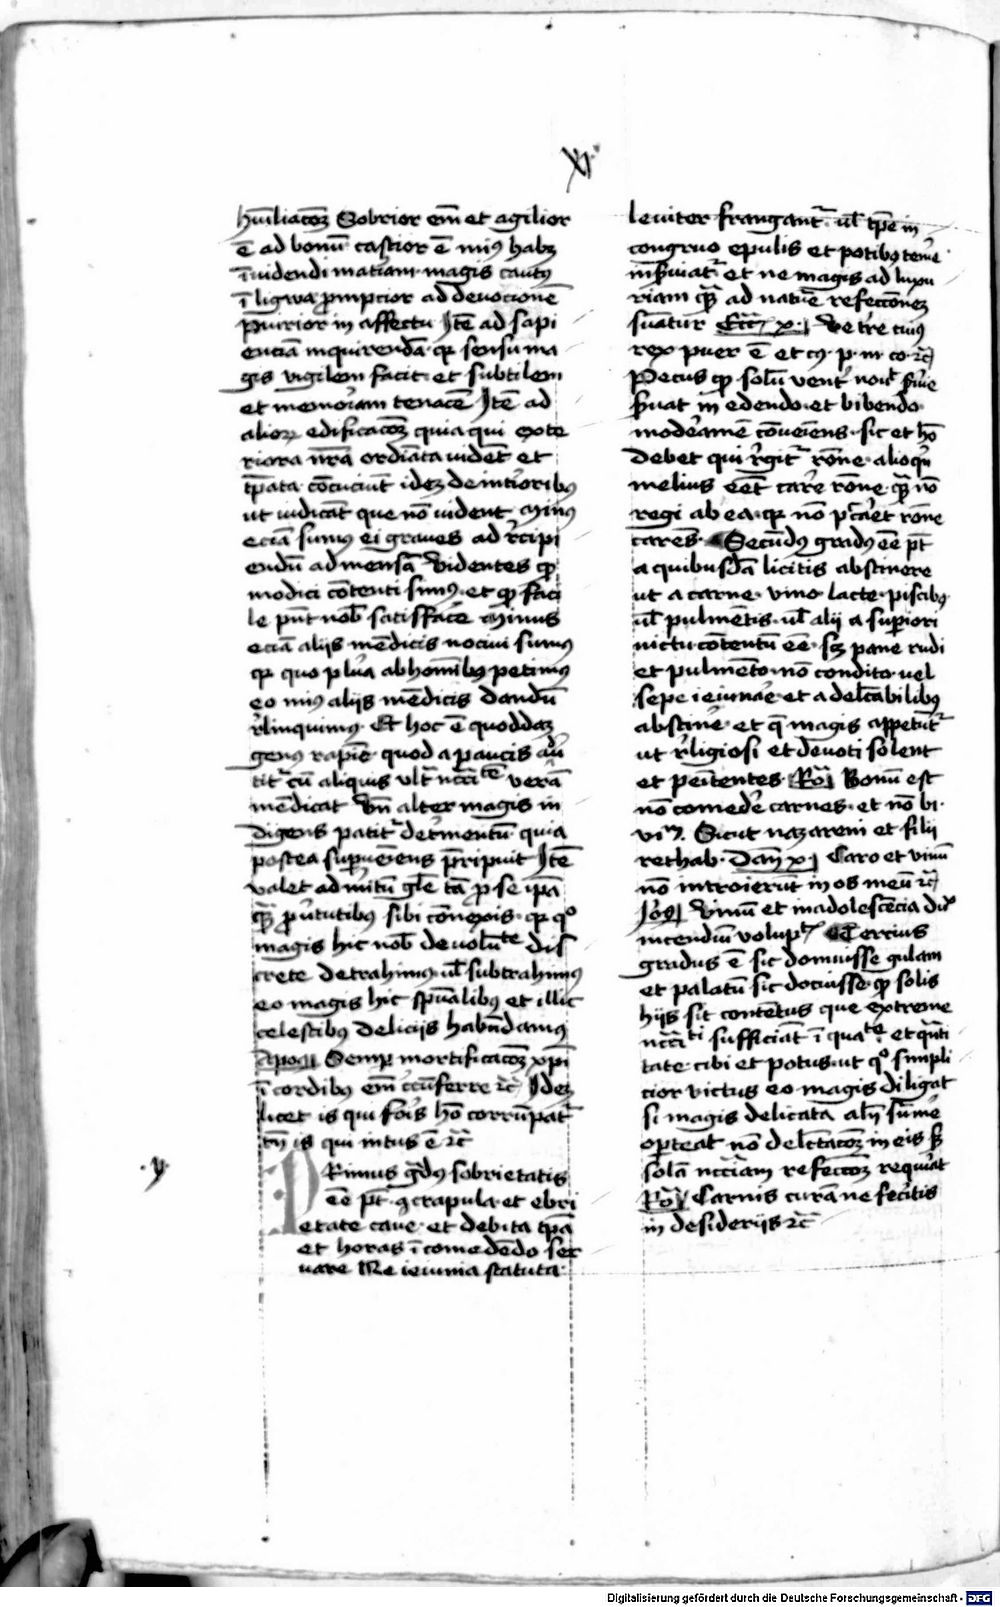 XI
hūiliacōꝫ Sobrior em̄ et agilior
ē ad bonū castior ē minꝰ habꝫ
īvidendi matīam magis cautꝰ
ī ligwa promptior ad devocionē
purior in affectu Itē ad sapi
enciā inquirendā qꝛ sensu ma
gis vigilem facit et subtilem
et memoriam tenacē Itē ad
alioꝝ edificacōꝫ quia qui exte
riora nrā ordiata vidēt et
tꝑata cōiciunt idꝫ de interioribꝰ
ut iudicāt que nō vident Minꝰ
eciā sumꝰ ei graves ad rcipi
endū ad mensā Videntes qꝫ
modici cōtenti simꝰ et qꝫ faci
le pn̄t nob̄ satisfacē Minus
eciā aliis mēdicis nocivi sumꝰ
qꝛ quo plura ab hōibꝰ petimꝰ
eo minꝰ aliis mēdicis dandū
rlinquimꝰ Et hoc ē quoddaꝫ
genꝰ rapīe quod a paucis adv̄
titr̄ cū aliquis vltr̄ nccītē verā
mēdicat Vn̄ alter magis in
digens patitr̄ detrimentū quia
postea supueniēns p̄ripuit Itē
valet ad mitū gl̄e tā pro se ipā
quā pro v̄tutibꝰ sibi cōnexis qꝛ qͦ
magis hic nob̄ de volūte dis
crete detrahimꝰ ul̄ subtrahimꝰ
eo magis hic spūalibꝰ et illic
celestibꝰ deliciis habūdamꝰ
Apoꝯ Semp mortificacōꝫ xp̄i
ī cordibꝰ em̄ ccūferre ⁊c̄ Idꝫ
licet is qui foris hō corrūpatr̄
tn̄ is qui intus ē ⁊c̄
.y.
PRimus gradꝰ sobrietatis
ēē pt̄ q̄ crapula et ebri
etate cave et debita tꝑa
et horas ī comedēdo ser
vare Ne ieiunia statuta
leviter frangantr̄ ul̄ tꝑe in
congruo epulis et potibꝰ teme
inserviatr̄ et ne magis ad luxu
riam quā ad nature refecconeꝫ
suatur Ecc̄i x Ve tre cuiꝰ
rex puer ē et cꝰ p in co ⁊c̄
Pecus qꝫ solū ventri novit servire
servat in edendo et bibendo
moderamē cōveniens sic et hō
debet qui rgitr̄ rōne alioqn̄
melius eēt carere rōne quā nō
regi ab ea qꝛ nō peccaret rōne
carēs Secūdꝰ gradꝰ ēē pt̄
a quibusdā licitis abstinere
ut a carne vino lacte piscibꝰ
ul̄ pulmētis ul̄ alii a supiori
victu cōtentū ēē sꝫ pane rudi
et pulmēto nō condito vel
sepe ieiunare et a delcābilibꝰ
abstinē et q̄ magis appetūtr̄
ut rligiosi et devoti solent
et penitentes Rō Bonū est
nō comedē carnes et nō bi
vinū Sicut nazareni et filii
rethab Dan̄ x Caro et vinū
nō introierūt in os meū ⁊c̄
Joꝯ Vinū et in adolescēcia du
incendiū volupt̄ Tercius
gradus ē sic domuisse gulam
et palatū sic docuisse qꝫ solis
hiis sit contētus que extreme
nccītī sufficiāt ī qualite et quāti
tate cibi et potus ut qͦ simpli
cior victus eo magis diligat
si magis delicata alīj sūme
oporteat nō delcātacōꝫ in eis sꝫ
solā nccīam refeccōꝫ requirat
Rō Carnis curā ne fecitis
in desideriis ⁊c̄
Digitalisierung gefördert durch die Deutsche Forschungsgemeinschaft - DFG